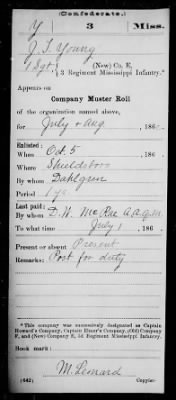 (Confederate.)
Y 3 Miss.
J. T. Young
1 Sgt, (New) Co. E,
3 Regiment Mississippi Infantry.*
Appears on
Company Muster Roll
of the organization named above,
for July & Aug, 186
Enlisted:
When Oct. 5, 186
Where Shieldsboro
By whom Dahlgren
Period 1 yr
Last paid:
By whom D. W. McRae A.A.Q.M.
To what time July 1, 186
Present or absent Present
Remarks: Post for duty
*This company was successively designated as Captain
Howard's Company, Captain Elmer's Company, (Old) Company
F, and (New) Company E, 3d Regiment Mississippi Infantry.
Book mark:
M. Leonard
(642) Copyist.